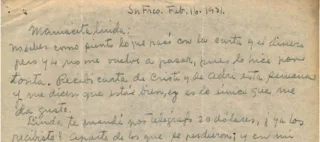 Sn Fco. Feb. 16-1931.
Manuscrita linda:
No sabes como siento lo que pasó con las carta y el dinero
pero ya no me vuelve a pasar, pues lo hice por
tonta. Recibí carta de Cristy y de Debri esta semana
y me dicen que estás bien, y es lo único que me
da gusto.
Linda te mandé por telégrafo 20 dólares, ¿ya los
recibiste? aparte de los que se perdieron; y en mi